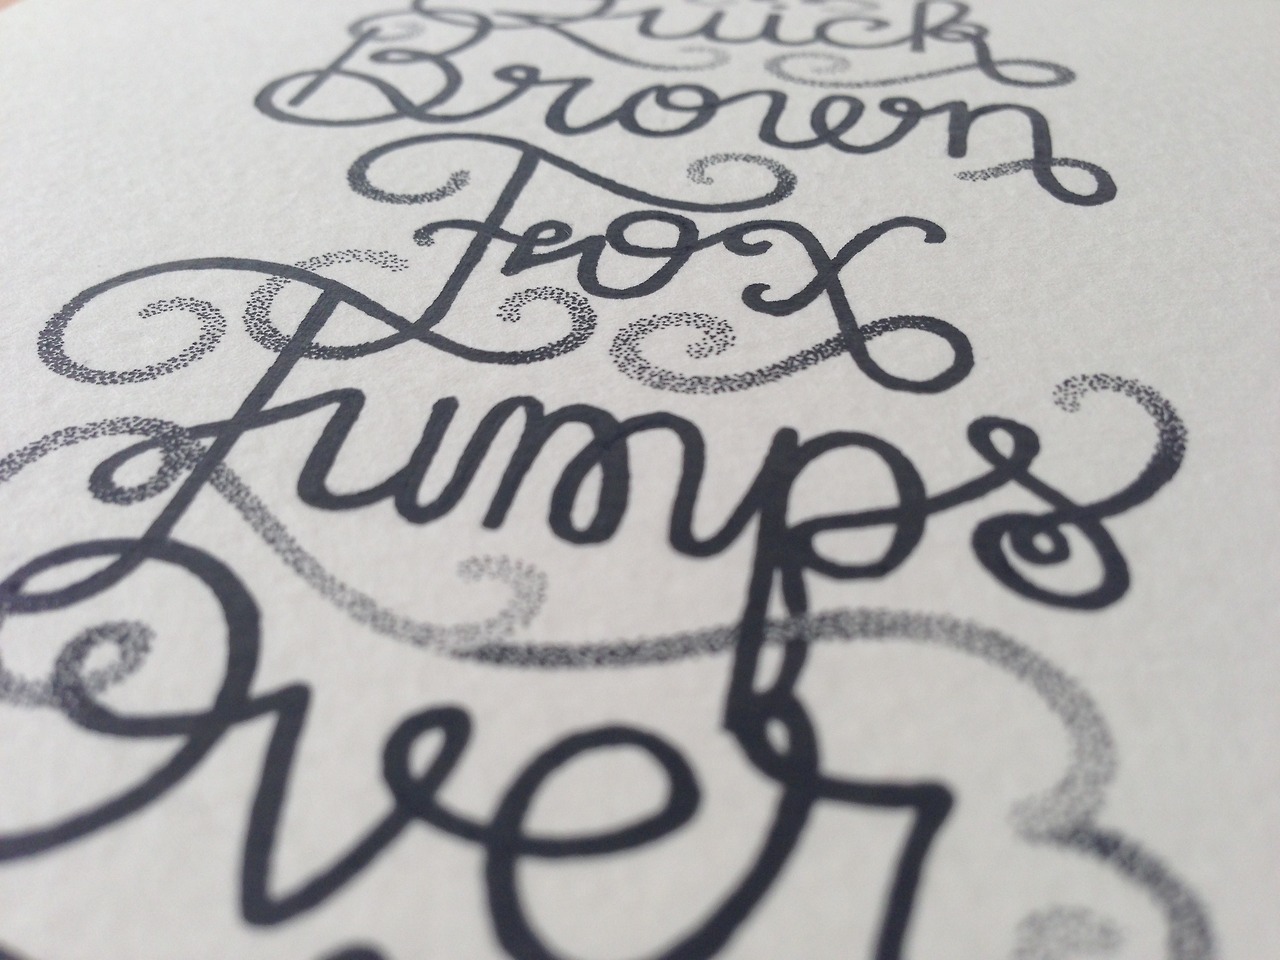 Quick
Brown
Fox
Jumps
Over